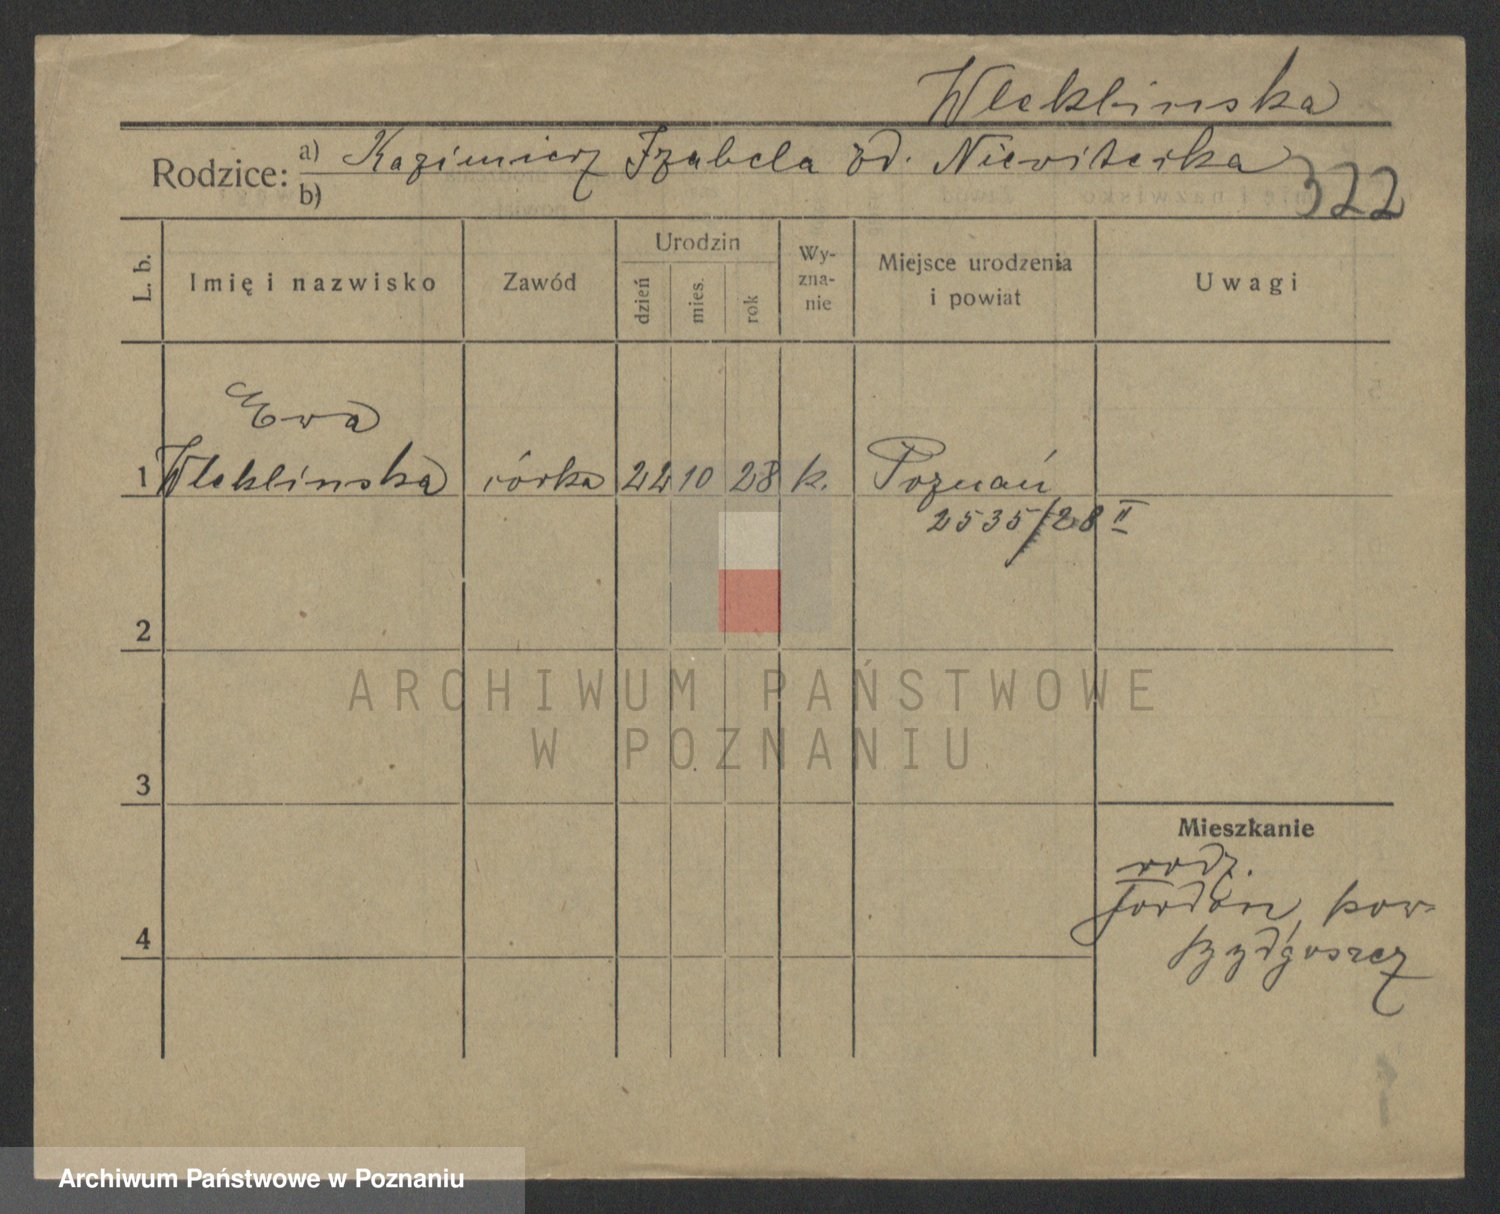 Wleklinska
Rodzice: a) Kazimierz Izabela zd. Niewiterka
b)
322
L. b. Imię i nazwisko Zawód Urodzin dzień mies. rok Wy-zna-nie Miejsce urodzenia i powiat Uwagi
Ewa
1 Wleklinska córka 22 10 28 k. Poznań
2535/28 II
2
3
Mieszkanie
rodz.
Fordon, pow.
4
Bydgoszcz
ARCHIWUM PAŃSTWOWE
W POZNANIU
Archiwum Państwowe w Poznaniu